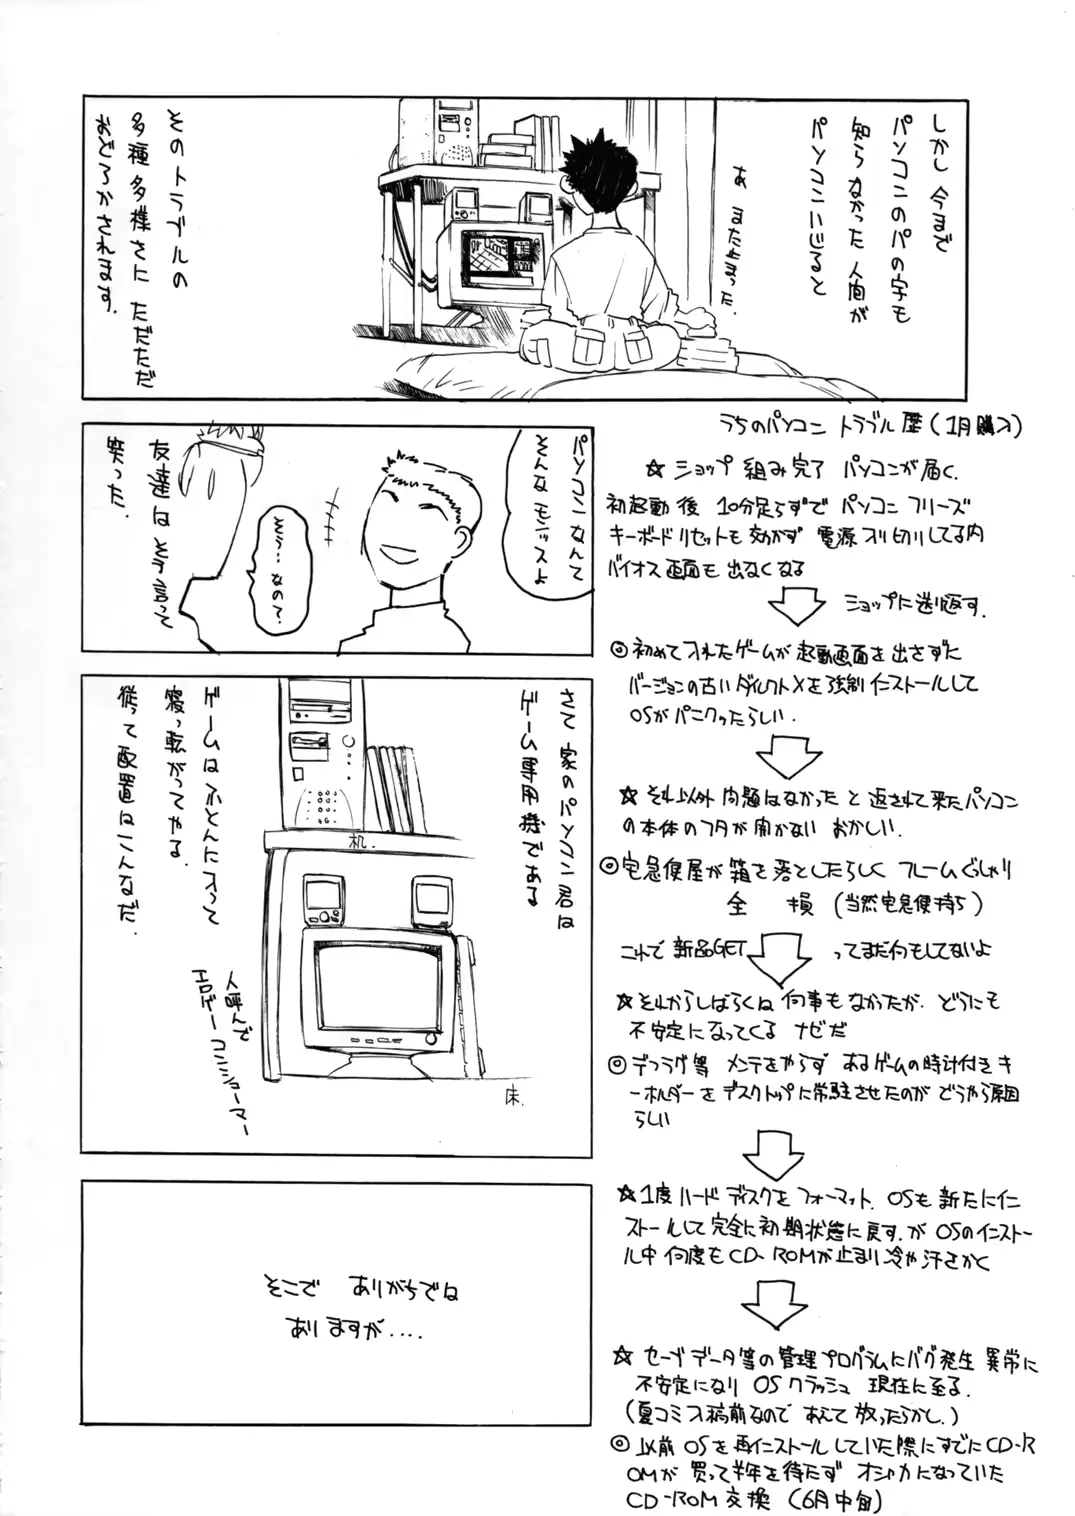 しかし 今まで
パソコンのパの字も
知らなかった 人間が
パソコンいじると
あ また止まった.
そのトラブルの
多種多様さに ただただ
おどろかされます.
パソコンなんて
そんなモンッスよ
そう…なの?.
友達は そう言って
笑った.
さて 家のパソコン君は
ゲーム専用機である
ゲームはふとんに入って
寝っ転がってやる.
従って 配置はこんなだ.
机.
床.
人呼んで
エロゲーコンショーマー
そこで ありがちでは
ありますが....
うちのパソコン トラブル歴(1月購入)
☆ ショップ 組み完了 パソコンが届く.
初起動後 10分足らずで パソコン フリーズ
キーボードリセットも効かず 電源入り切りしてる内
バイオス画面も 出なくなる
ショップに送り返す.
◎初めて入れたゲームが 起動画面を出さずに
バージョンの古いダイレクトXを強制インストールして
OSがパニクったらしい.
☆それ以外 問題はなかったと返されて来たパソコン
の本体のフタが開かない おかしい.
◎宅急便屋が 箱を落としたらしく フレームぐしゃり
全 損 (当然宅急便持ち)
これで 新品GET ってまだ何もしてないよ
☆それからしばらくは 何事もなかったが. どうにも
不安定になってくる ナゼだ
◎デフラグ等 メンテをやらず あるゲームの時計付きキ
ーホルダーをデスクトップに常駐させたのが どうやら原因
らしい
☆1度ハードディスクをフォーマット. OSも新たにイン
ストールして完全に初期状態に戻す.が OSのインストー
ル中 何度もCD-ROMが止まり冷や汗さかく
☆ セーブデータ等の管理プログラムにバグ発生 異常に
不安定になり OSクラッシュ 現在に至る.
(夏コミ入稿前なので あえて 放ったらかし.)
◎以前 OSを再インストールしていた際にすでにCD-R
OMが 買って半年を待たず オシャカになっていた
CD-ROM交換 (6月中旬)